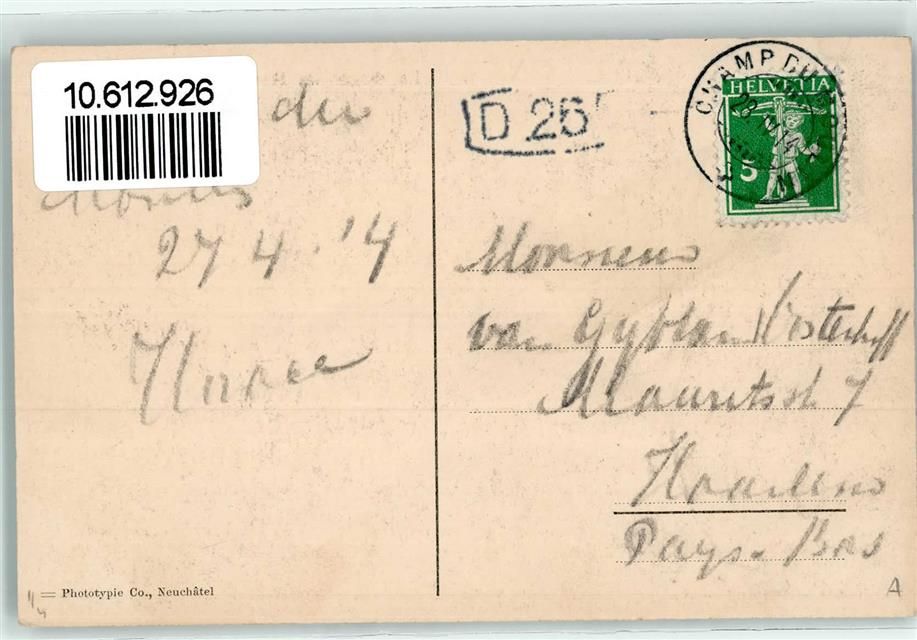 10.612.926
du
27 4. '14
D 26
CHAMP DU
HELVETIA
5
Monsieur
van Gyblan Oosterhoff
Mauritsstr 7
Haarlem
Pays-Bas
Phototypie Co., Neuchâtel
A